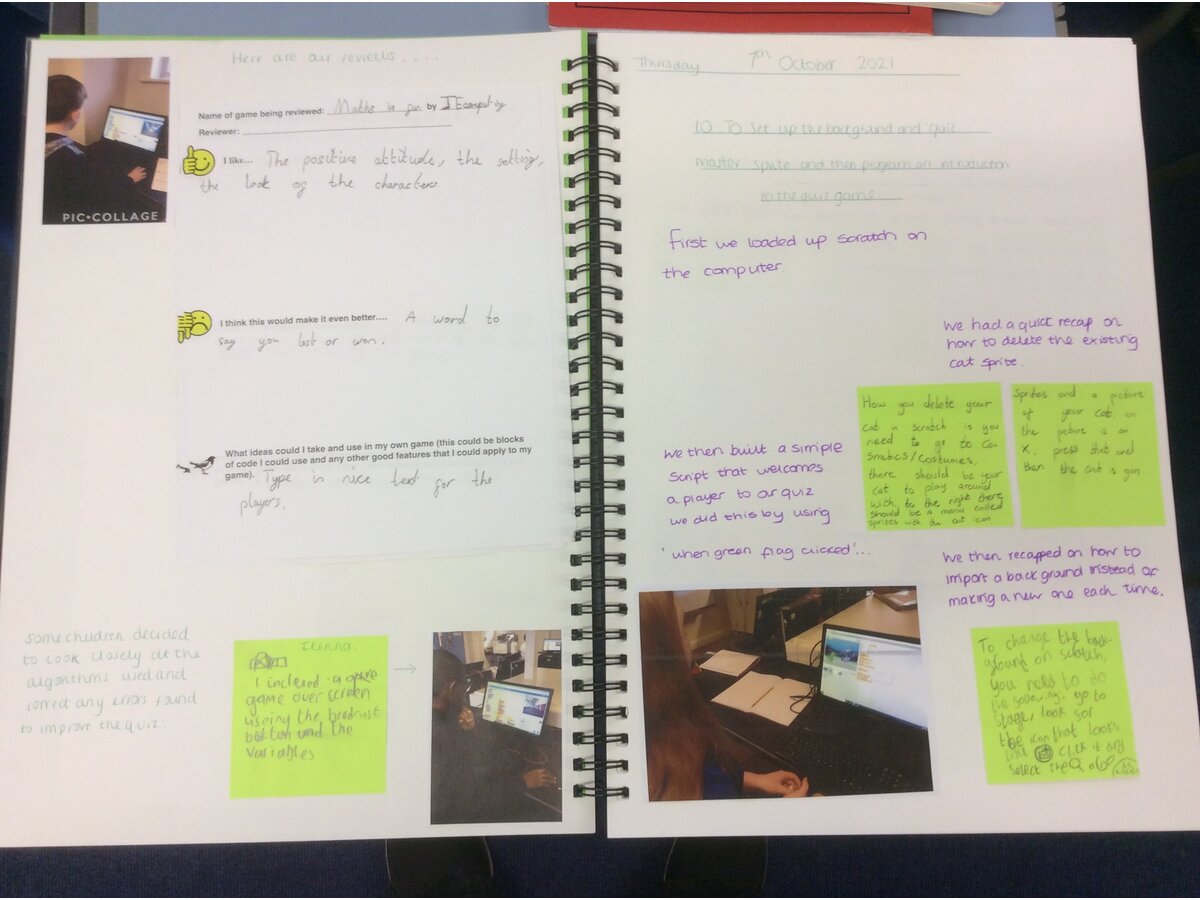 Here are our reviews....
PIC•COLLAGE
Name of game being reviewed: Maths is fun by JEcomputing
Reviewer:
I like... The positive attitude, the setting,
the look of the characters.
I think this would make it even better.... A word to
say you lost or won.
What ideas could I take and use in my own game (this could be blocks
of code I could use and any other good features that I could apply to my
game). Type in nice text for the
players.
some children decided
to look closely at the
algorithms used and
correct any errors found
to improve the quiz.
Ikenna.
I inclered a
game over screen
using the brodcast
button and the
variables
Thursday 7th October 2021
LO: To set up the background and 'quiz
master' sprite and then program an introduction
to the quiz game
First we loaded up scratch on
the computer
We had a quick recap on
how to delete the existing
cat sprite.
How you delete your
cat in scratch is you
need to go to Co-
smetics/costumes,
there should be your
cat to play around
with, to the right there
should be a menu called
sprites with the cat icon
Sprites and a picture
of your cat, on
the picture is an
X, press that and
then the cat is gon
We then built a simple
script that welcomes
a player to our quiz
we did this by using
'when green flag clicked'...
We then recapped on how to
import a background instead of
making a new one each time.
To change the back-
ground on scratch,
you need to do
the following: go to
stage, look for
the icon that looks
like click it and
select the